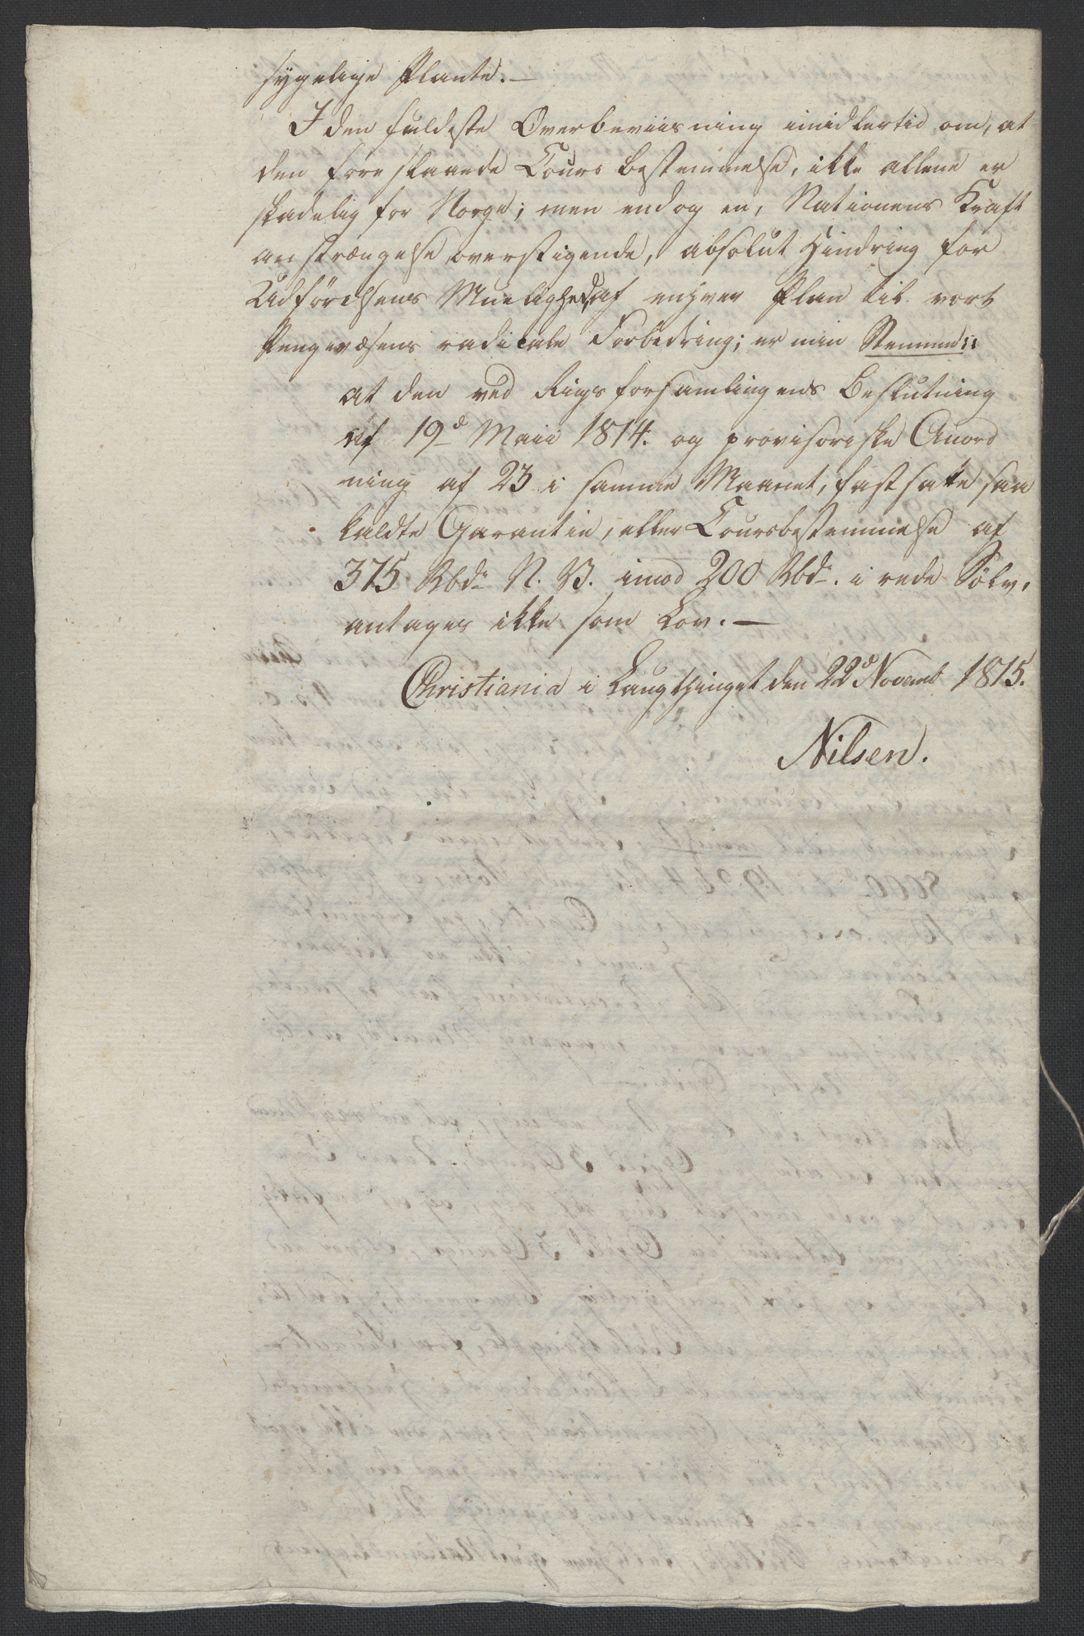 sygelige Plante. —
I den fuldeste Overbeviisning imidlertid om, at
den foreslaaede Cours bestemmelse, ikke allene er
skadelig for Norge; men endog en, Nationens Kraft
anstrængelse overstigende, absolut Hindring for
Udførelsens Muelighed, af enhver Plan til vort
Pengevæsens radicale Forbedring; er min Stemme:
at den ved Rigsforsamlingens Beslutning
af 19d Maii 1814. og provisoriske Anord
ning af 23 i samme Maanet, fastsatte saa
kaldte Garantie, eller Coursbestemmelse af
375 Rbd. N. V. imod 200 Rbd. i rede Sølv,
antages ikke som Lov. —
Christiania i Laugthinget den 22d Novemb 1815.
Nilsen.